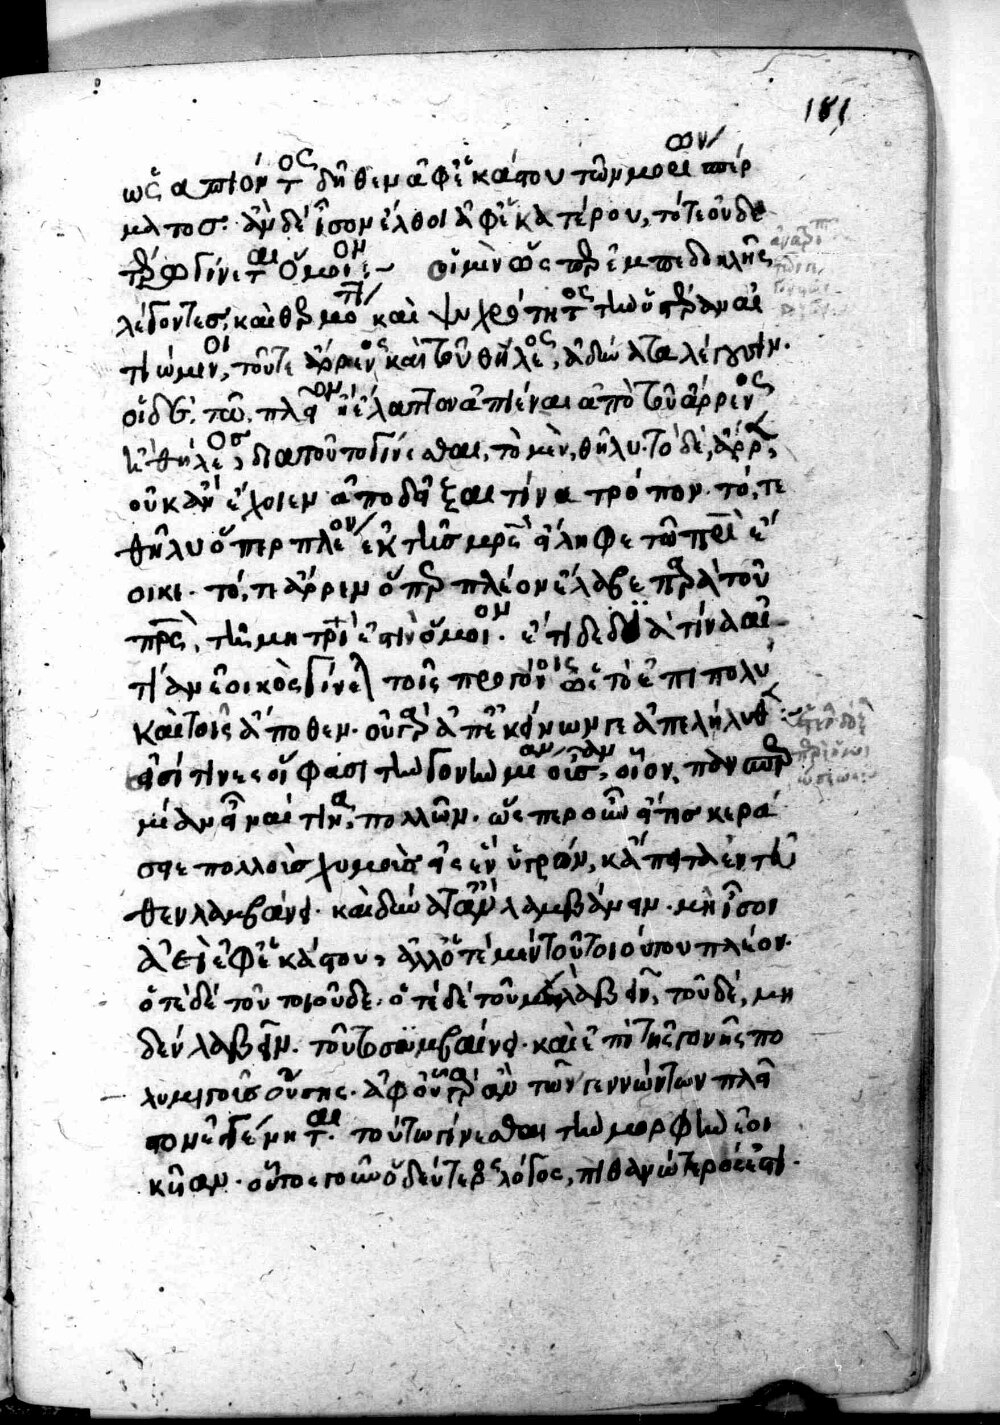 181
ὡς ἀπιόντος δὴ θεμ ἀφ' ἑκάστου τῶν μορίων σπέρ
ματος. ἂν δὲ ἴσον ἔλθοι ἀφ' ἑκατέρου, τότε οὐδε
τέρῳ γίνεται ὅμοιον :~ οἱ μὲν ὡς περ ἐμπεδοκλῆς
λέγοντες, καὶ θερμότητι καὶ ψυχρότητος τὴν ὑπὲρ ἂν αἰ
τιώμενοι, τοῦτε ἄρρενος καὶ τοῦ θήλεος, ἀδύνατα λέγουσιν.
οἱ δὲ, τῶ, πλεῖον ἢ ἔλαττον ἀπιέναι ἀπὸ τοῦ ἄρρενος
καὶ θήλεος, διαποῦτο γίνεσθαι, τὸ μὲν, θῆλυ. τὸ δὲ, ἄρρεν,
οὐκ ἂν ἔχοιεν ἀποδεῖξαι τίνα τρόπον. τό, τε
θῆλυ ὅπερ πλέον ἐκ τῆς μητρὸς εἴληφε τῶ πατρὶ ἐ
οικε. τό, τε ἄρρεν ὅπερ πλέον ἔλαβε παρὰ τοῦ
πατρός, τῆ μητρί ἐστὶν ὅμοιον. ἔτι δὲ διὰ τίνα αἰ
τίαν ἐοικὸς γίνεται τοῖς προγόνοις ὡς τὸ ἐπιπολὺ
καὶ τοῖς ἄποθεν. οὐ γὰρ ἀπ' ἐκείνων γε ἀπελήλυθεν :~
εἰσί τινες οἵ φασι τὴν γονὴν μίαν οὖσαν, οἷον, πανσπερ
μίαν εἶναί τινα, πολλῶν. ὥσπερ οὖν εἴ τις κερά
σειε πολλοὺς χυμοὺς εἰς ἓν ὑγρόν, κἄπειτα ἐντεῦ
θεν λαμβάνει. καὶ δύναται ἂν λαμβάνειν. μὴ ἴσον
ἀεὶ ἀφ' ἑκάστου, ἀλλ' ὁτὲ μὲν τοῦ τοιούτου πλέον.
ὁτὲ δὲ τοῦ τοιοῦδε. ὁτὲ δὲ τοῦ μὲν λαβεῖν, τοῦ δέ, μη
δὲν λαβεῖν. τοῦτο συμβαίνει. καὶ ἐπὶ τῆς γονῆς πο
λυμιγοῦς οὔσης. ἀφ' οὗ γὰρ ἂν τῶν γεννώντων πλεῖ
στον ἐγγένηται. τούτω γίνεσθαι τὴν μορφὴν ἐοι
κῆαν. οὗτος γοῦν ὁ δεύτερος λόγος, πιθανώτερός ἐστι.